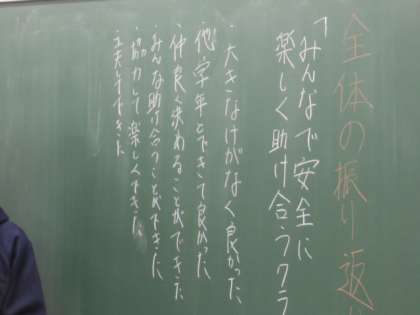 全体の振り返
「みんなで安全に
楽しく助け合うクラ
・大きなけがなく良かった。
・他学年とできて良かった。
・仲良く決めることができた。
・みんな助け合うことができた。
・協力して楽しくできた。
・工夫してできた